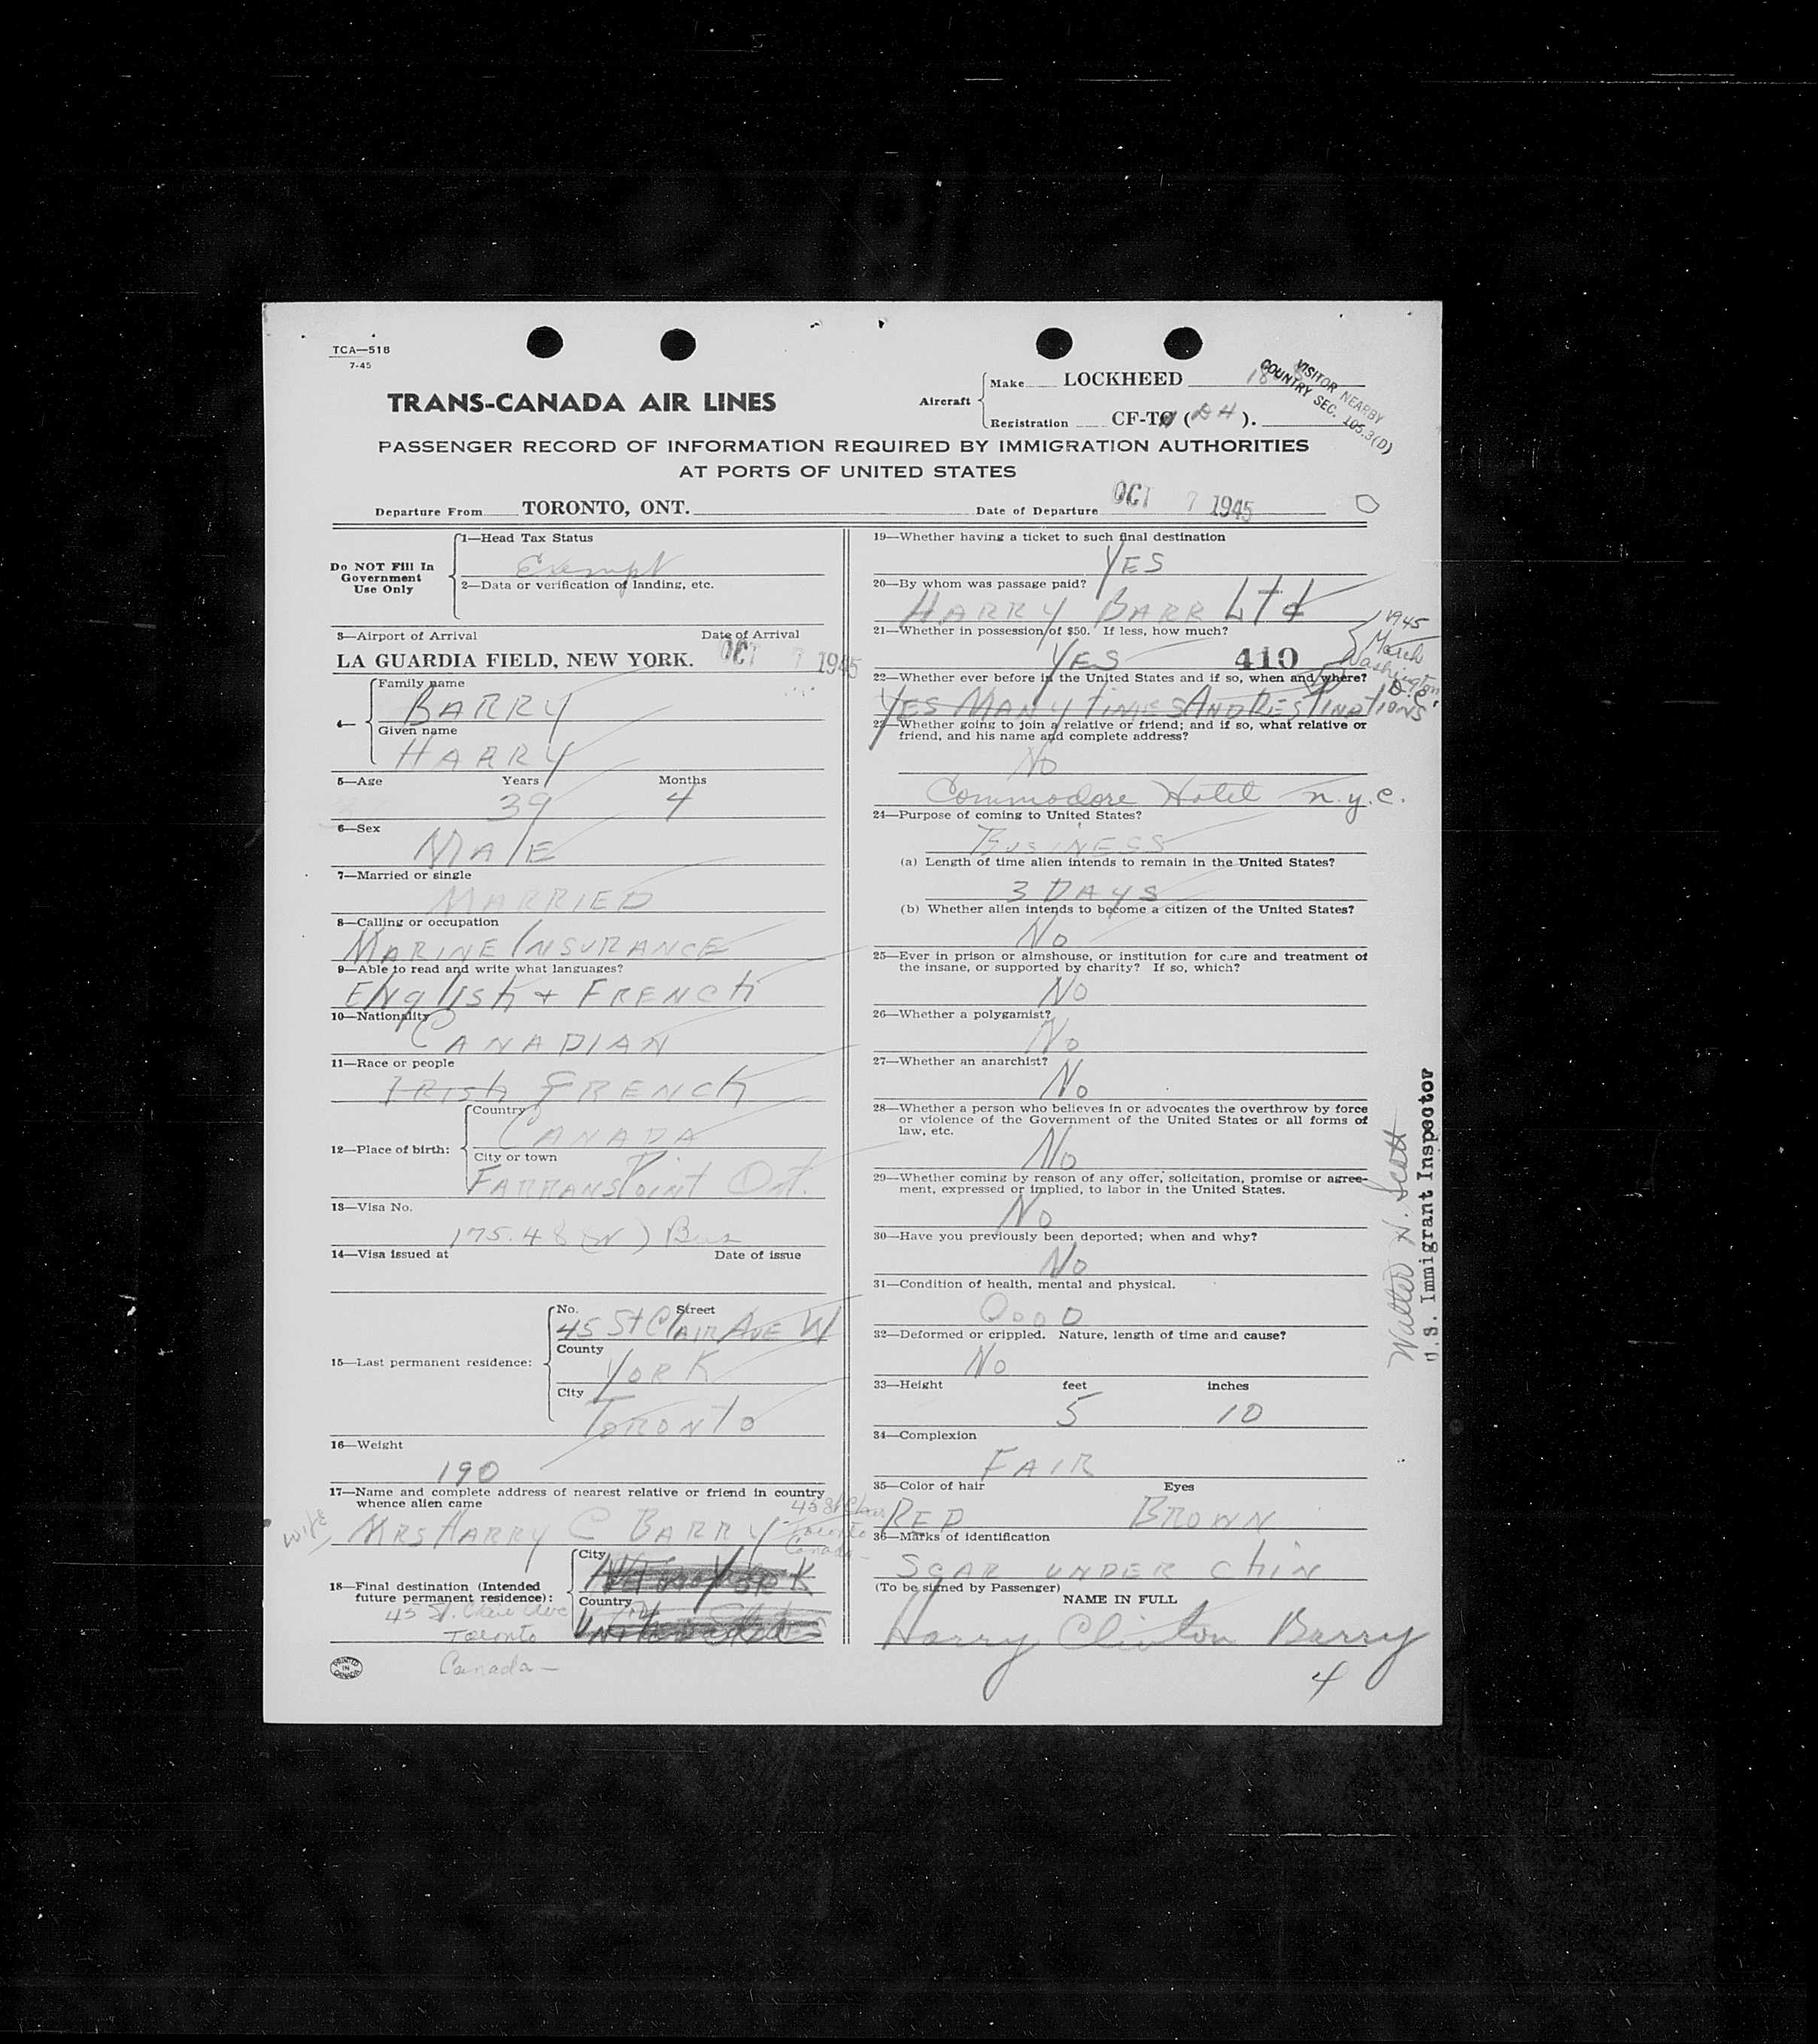 TCA—518
7-45
TRANS-CANADA AIR LINES
Aircraft
Make LOCKHEED 18
Registration CF-TC (DH).
VISITOR NEARBY
COUNTRY SEC. 105.3(D)
PASSENGER RECORD OF INFORMATION REQUIRED BY IMMIGRATION AUTHORITIES
AT PORTS OF UNITED STATES
Departure From TORONTO, ONT. Date of Departure OCT 7 1945
Do NOT Fill In
Government
Use Only
1—Head Tax Status
Exempt
2—Data or verification of landing, etc.
3—Airport of Arrival Date of Arrival
LA GUARDIA FIELD, NEW YORK. OCT 7 1945
4—
Family name
BARRY
Given name
HARRY
5—Age Years Months
39 4
6—Sex
MALE
7—Married or single
MARRIED
8—Calling or occupation
MARINE INSURANCE
9—Able to read and write what languages?
ENglish + FRENCh
10—Nationality
CANADIAN
11—Race or people
IRish FRENCh
12—Place of birth:
Country
CANADA
City or town
FARRANS POINT Ont.
13—Visa No.
175.48 (W) Bus
14—Visa issued at Date of issue
15—Last permanent residence:
No. Street
45 St ClAIR AVE W
County
YORK
City
TORONTO
16—Weight
190
17—Name and complete address of nearest relative or friend in country
whence alien came
wife MRS HARRY C BARRY 45 St Clair
Toronto
Canada
18—Final destination (Intended
future permanent residence):
City
NEW YORK
Country
45 St. Clair Ave
Toronto
Canada—
PRINTED
IN
CANADA
19—Whether having a ticket to such final destination
YES
20—By whom was passage paid?
HARRY BARR LTd
21—Whether in possession of $50. If less, how much?
YES 410
1945
March
Washington
D.C.
22—Whether ever before in the United States and if so, when and where?
YES MANY TIMES AND DESTINATIONS
23—Whether going to join a relative or friend; and if so, what relative or
friend, and his name and complete address?
No
Commodore Hotel n.y.c.
24—Purpose of coming to United States?
BUSINESS
(a) Length of time alien intends to remain in the United States?
3 DAYS
(b) Whether alien intends to become a citizen of the United States?
No
25—Ever in prison or almshouse, or institution for care and treatment of
the insane, or supported by charity? If so, which?
No
26—Whether a polygamist?
No
27—Whether an anarchist?
No
28—Whether a person who believes in or advocates the overthrow by force
or violence of the Government of the United States or all forms of
law, etc.
No
29—Whether coming by reason of any offer, solicitation, promise or agree-
ment, expressed or implied, to labor in the United States.
No
30—Have you previously been deported; when and why?
No
31—Condition of health, mental and physical.
GOOD
32—Deformed or crippled. Nature, length of time and cause?
No
33—Height feet inches
5 10
34—Complexion
FAIR
35—Color of hair Eyes
RED BROWN
36—Marks of identification
SCAR UNDER ChIN
(To be signed by Passenger)
NAME IN FULL
Harry Clinton Barry
4
Walter H. Scott
U.S. Immigrant Inspector